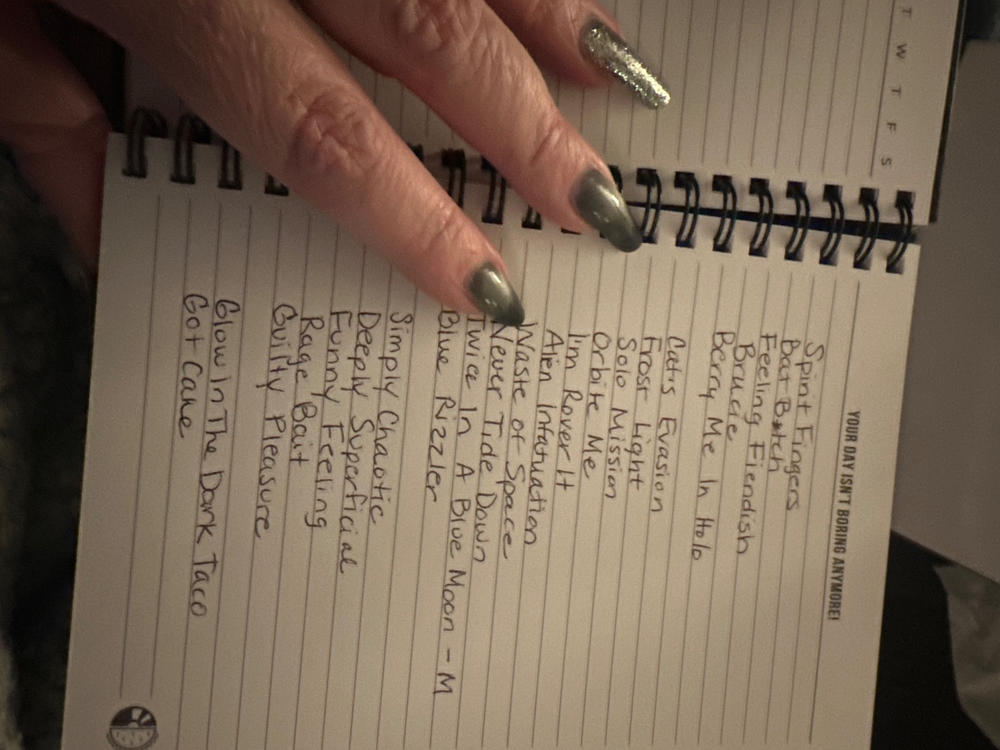 T W T F S
YOUR DAY ISN'T BORING ANYMORE!
Spirit Fingers
Boat B*tch
Feeling Fiendish
Brucie
Berry Me In Holo
Cats Evasion
Frost Light
Solo Mission
Orbite Me
I'm Rover It
Alien Infatuation
Waste of Space
Never Tide Down
Twice In A Blue Moon - M
Blue Rizzler
Simply Chaotic
Deeply Superficial
Funny Feeling
Rage Bait
Guilty Pleasure
Glow In The Dark Taco
Got Cane